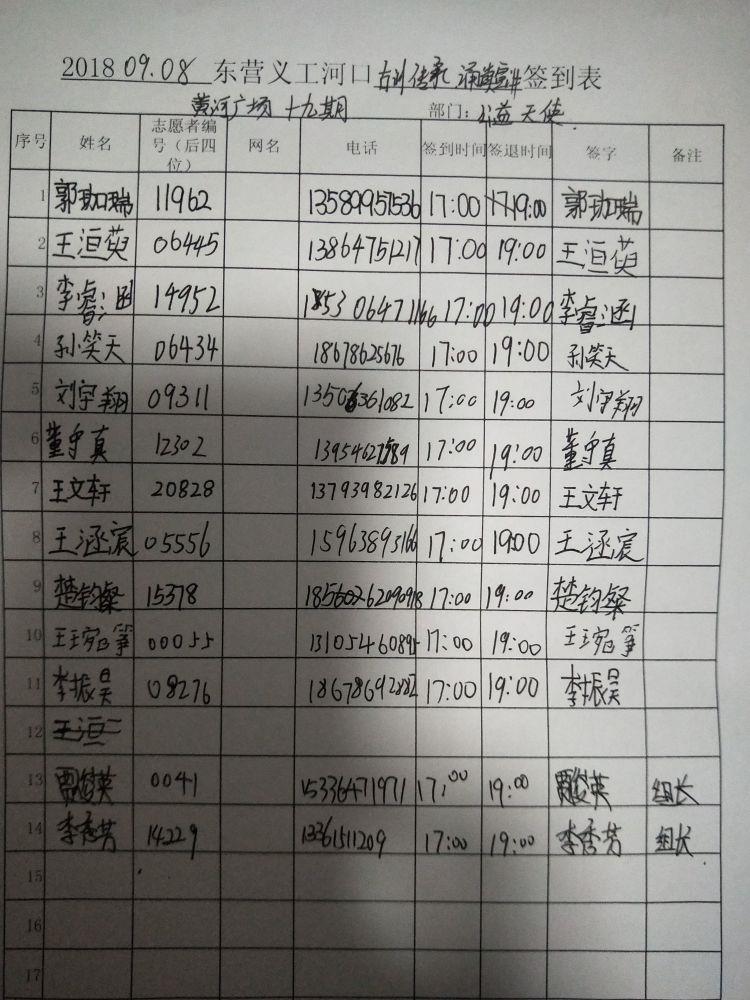 2018 09.08 东营义工河口古训传承 诵 签到表
黄河广场 十九期 部门: 公益天使
序号 姓名 志愿者编号（后四位） 网名 电话 签到时间 签退时间 签字 备注
1 郭珈瑞 11962 13589957536 17:00 19:00 郭珈瑞
2 王洹萸 06445 13864751217 17:00 19:00 王洹萸
3 李睿涵 14952 185306471166 17:00 19:00 李睿涵
4 孙笑天 06434 18678625676 17:00 19:00 孙笑天
5 刘宇翔 09311 13506361082 17:00 19:00 刘宇翔
6 董守真 12302 17:00 19:00 董守真
7 王文轩 20828 13793982126 17:00 19:00 王文轩
8 王涵宸 05556 15963893166 17:00 19:00 王涵宸
9 楚钧粲 15378 17:00 19:00 楚钧粲
10 00055 13105460895 17:00 19:00
11 李振昊 08276 18678692882 17:00 19:00 李振昊
12 王洹
13 贾俊英 0041 15336471971 17:00 19:00 贾俊英 组长
14 李秀芳 14229 13361511209 17:00 19:00 李秀芳 组长
15
16
17